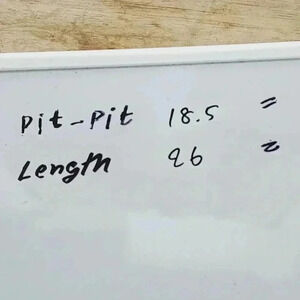 Pit-Pit 18.5 =
Length 26 =